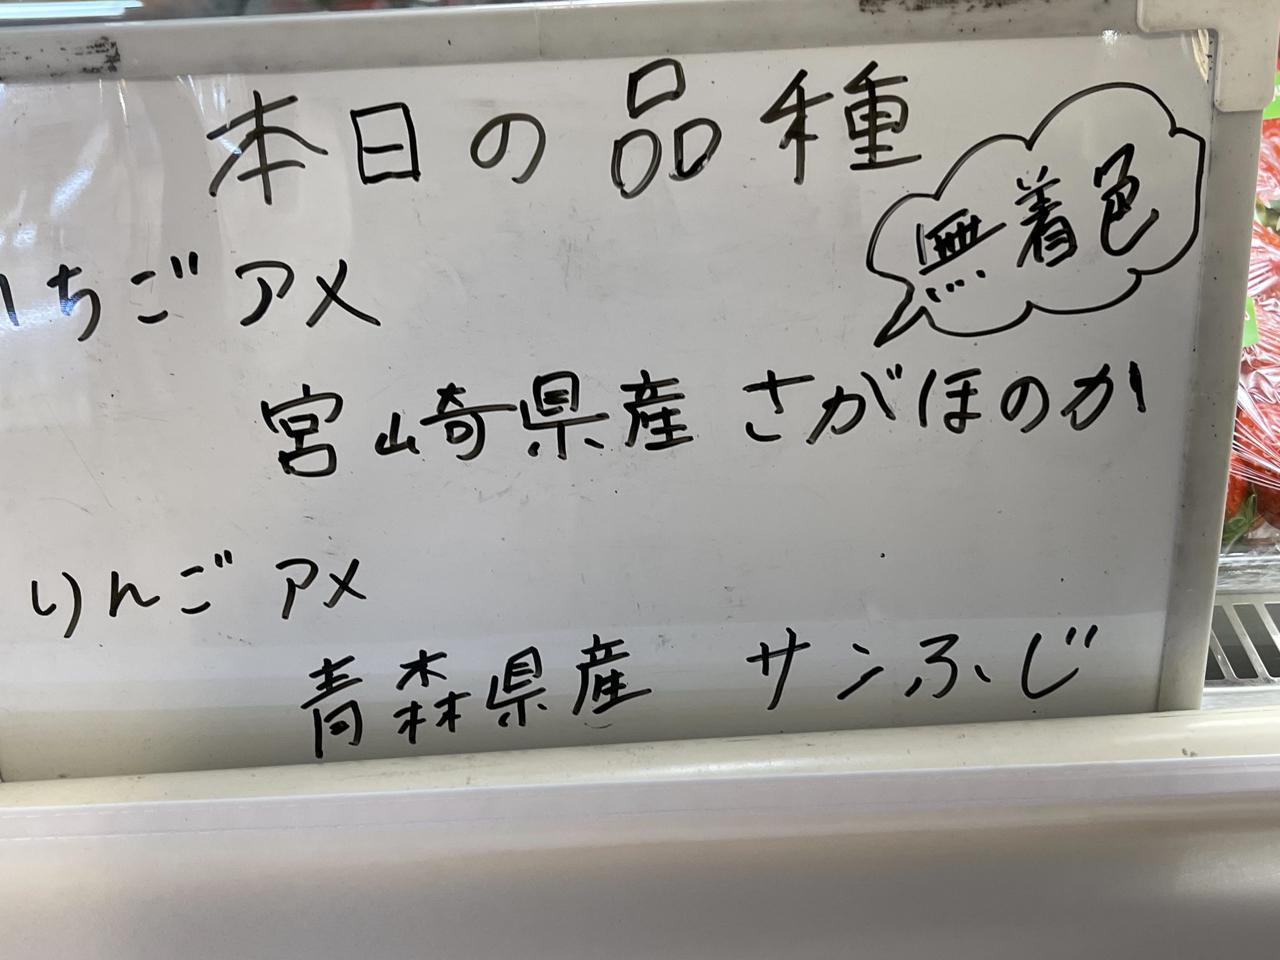 本日の品種
無着色
いちごアメ
宮崎県産 さがほのか
りんごアメ
青森県産 サンふじ